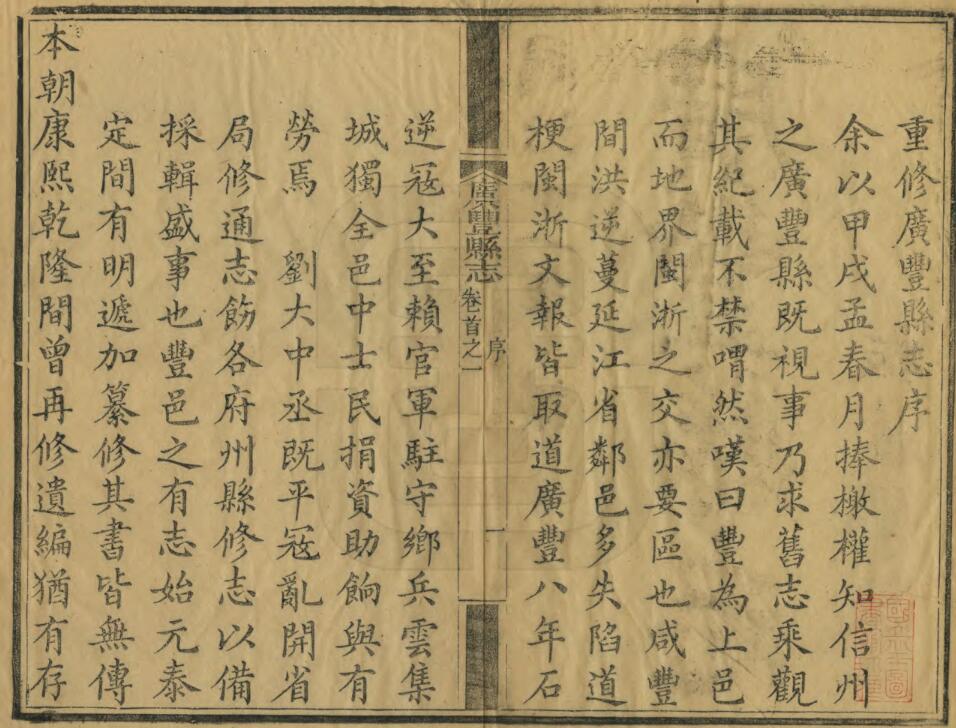 重修廣豐縣志序
余以甲戌孟春月捧檄權知信州
之廣豐縣既視事乃求舊志乘觀
其紀載不禁喟然嘆曰豐為上邑
而地界閩浙之交亦要區也咸豐
間洪逆蔓延江省鄰邑多失陷道
梗閩浙文報皆取道廣豐八年石
廣豐縣志 卷首之一 序 一
逆冦大至賴官軍駐守鄉兵雲集
城獨全邑中士民捐資助餉與有
勞焉 劉大中丞既平冦亂開省
局修通志飭各府州縣修志以備
採輯盛事也豐邑之有志始元泰
定間有明遞加纂修其書皆無傳
本朝康熙乾隆間曾再修遺編猶有存